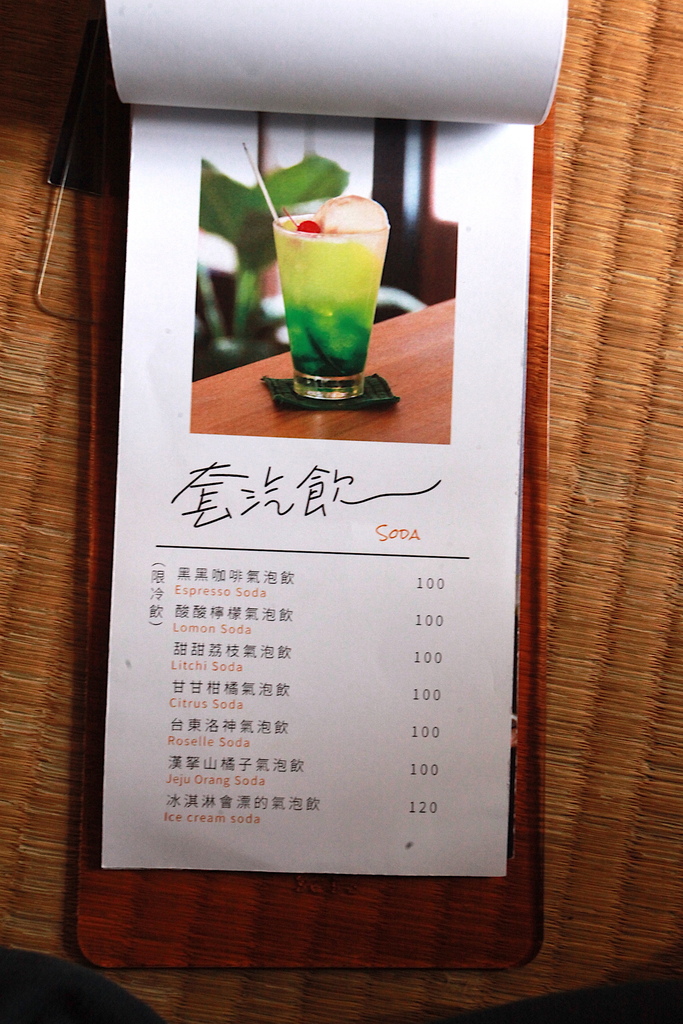 套汽飲
SODA
(限冷飲)
黑黑咖啡氣泡飲 100
Espresso Soda
酸酸檸檬氣泡飲 100
Lomon Soda
甜甜荔枝氣泡飲 100
Litchi Soda
甘甘柑橘氣泡飲 100
Citrus Soda
台東洛神氣泡飲 100
Roselle Soda
漢拏山橘子氣泡飲 100
Jeju Orang Soda
冰淇淋會漂的氣泡飲 120
Ice cream soda